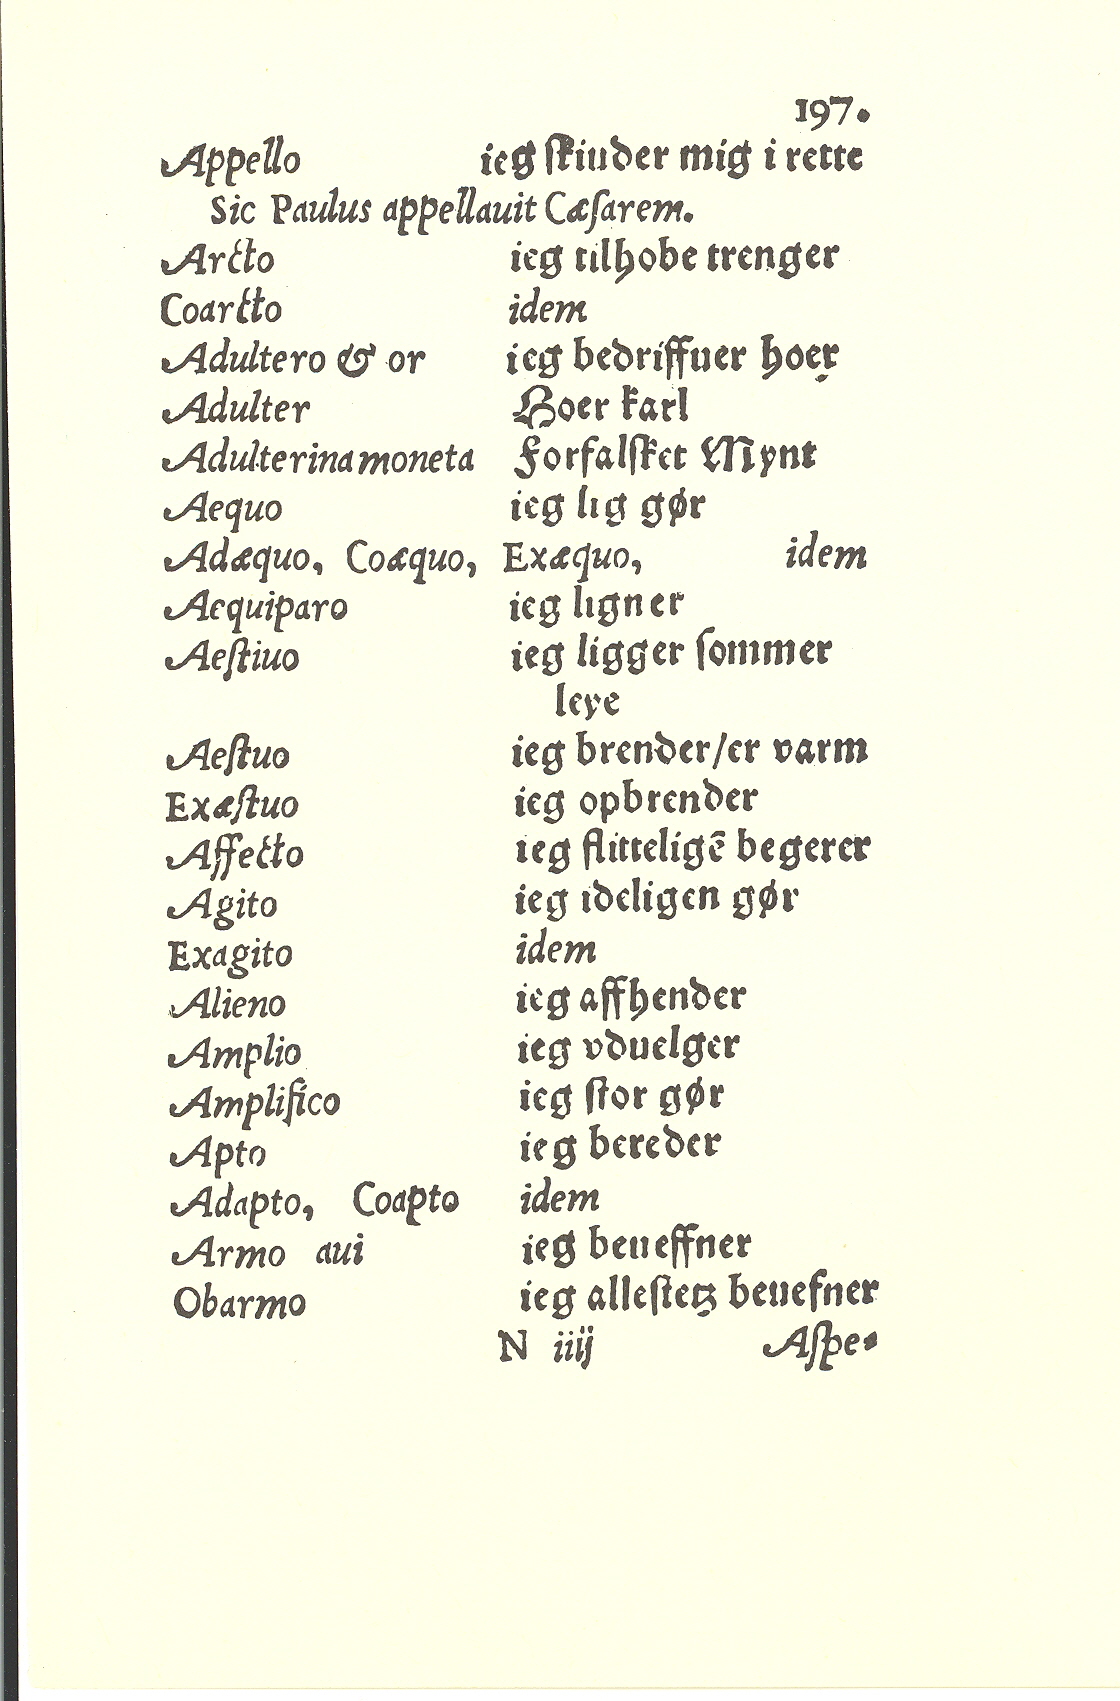 197.
Appello ieg skiuder mig i rette
Sic Paulus appellauit Cæsarem.
Arcto ieg tilhobe trenger
Coarcto idem
Adultero & or ieg bedriffuer hoer
Adulter Hoer karl
Adulterina moneta Forfalsket Mynt
Aequo ieg lig gør
Adæquo, Coæquo, Exæquo, idem
Aequiparo ieg ligner
Aestiuo ieg ligger sommer
leye
Aestuo ieg brender/er varm
Exæstuo ieg opbrender
Affecto ieg flitteligē begerer
Agito ieg ideligen gør
Exagito idem
Alieno ieg affhender
Amplio ieg vduelger
Amplifico ieg stor gør
Apto ieg bereder
Adapto, Coapto idem
Armo aui ieg beueffner
Obarmo ieg allestetz beuefner
N iiij Aspe-